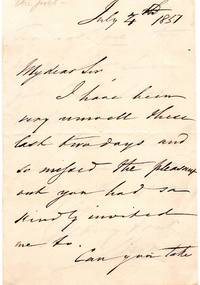 July 4th 1857
My dear Sir
I have been
very unwell these
last two days and
so missed the pleasure
out you had so
kindly invited
me to.
Can you take